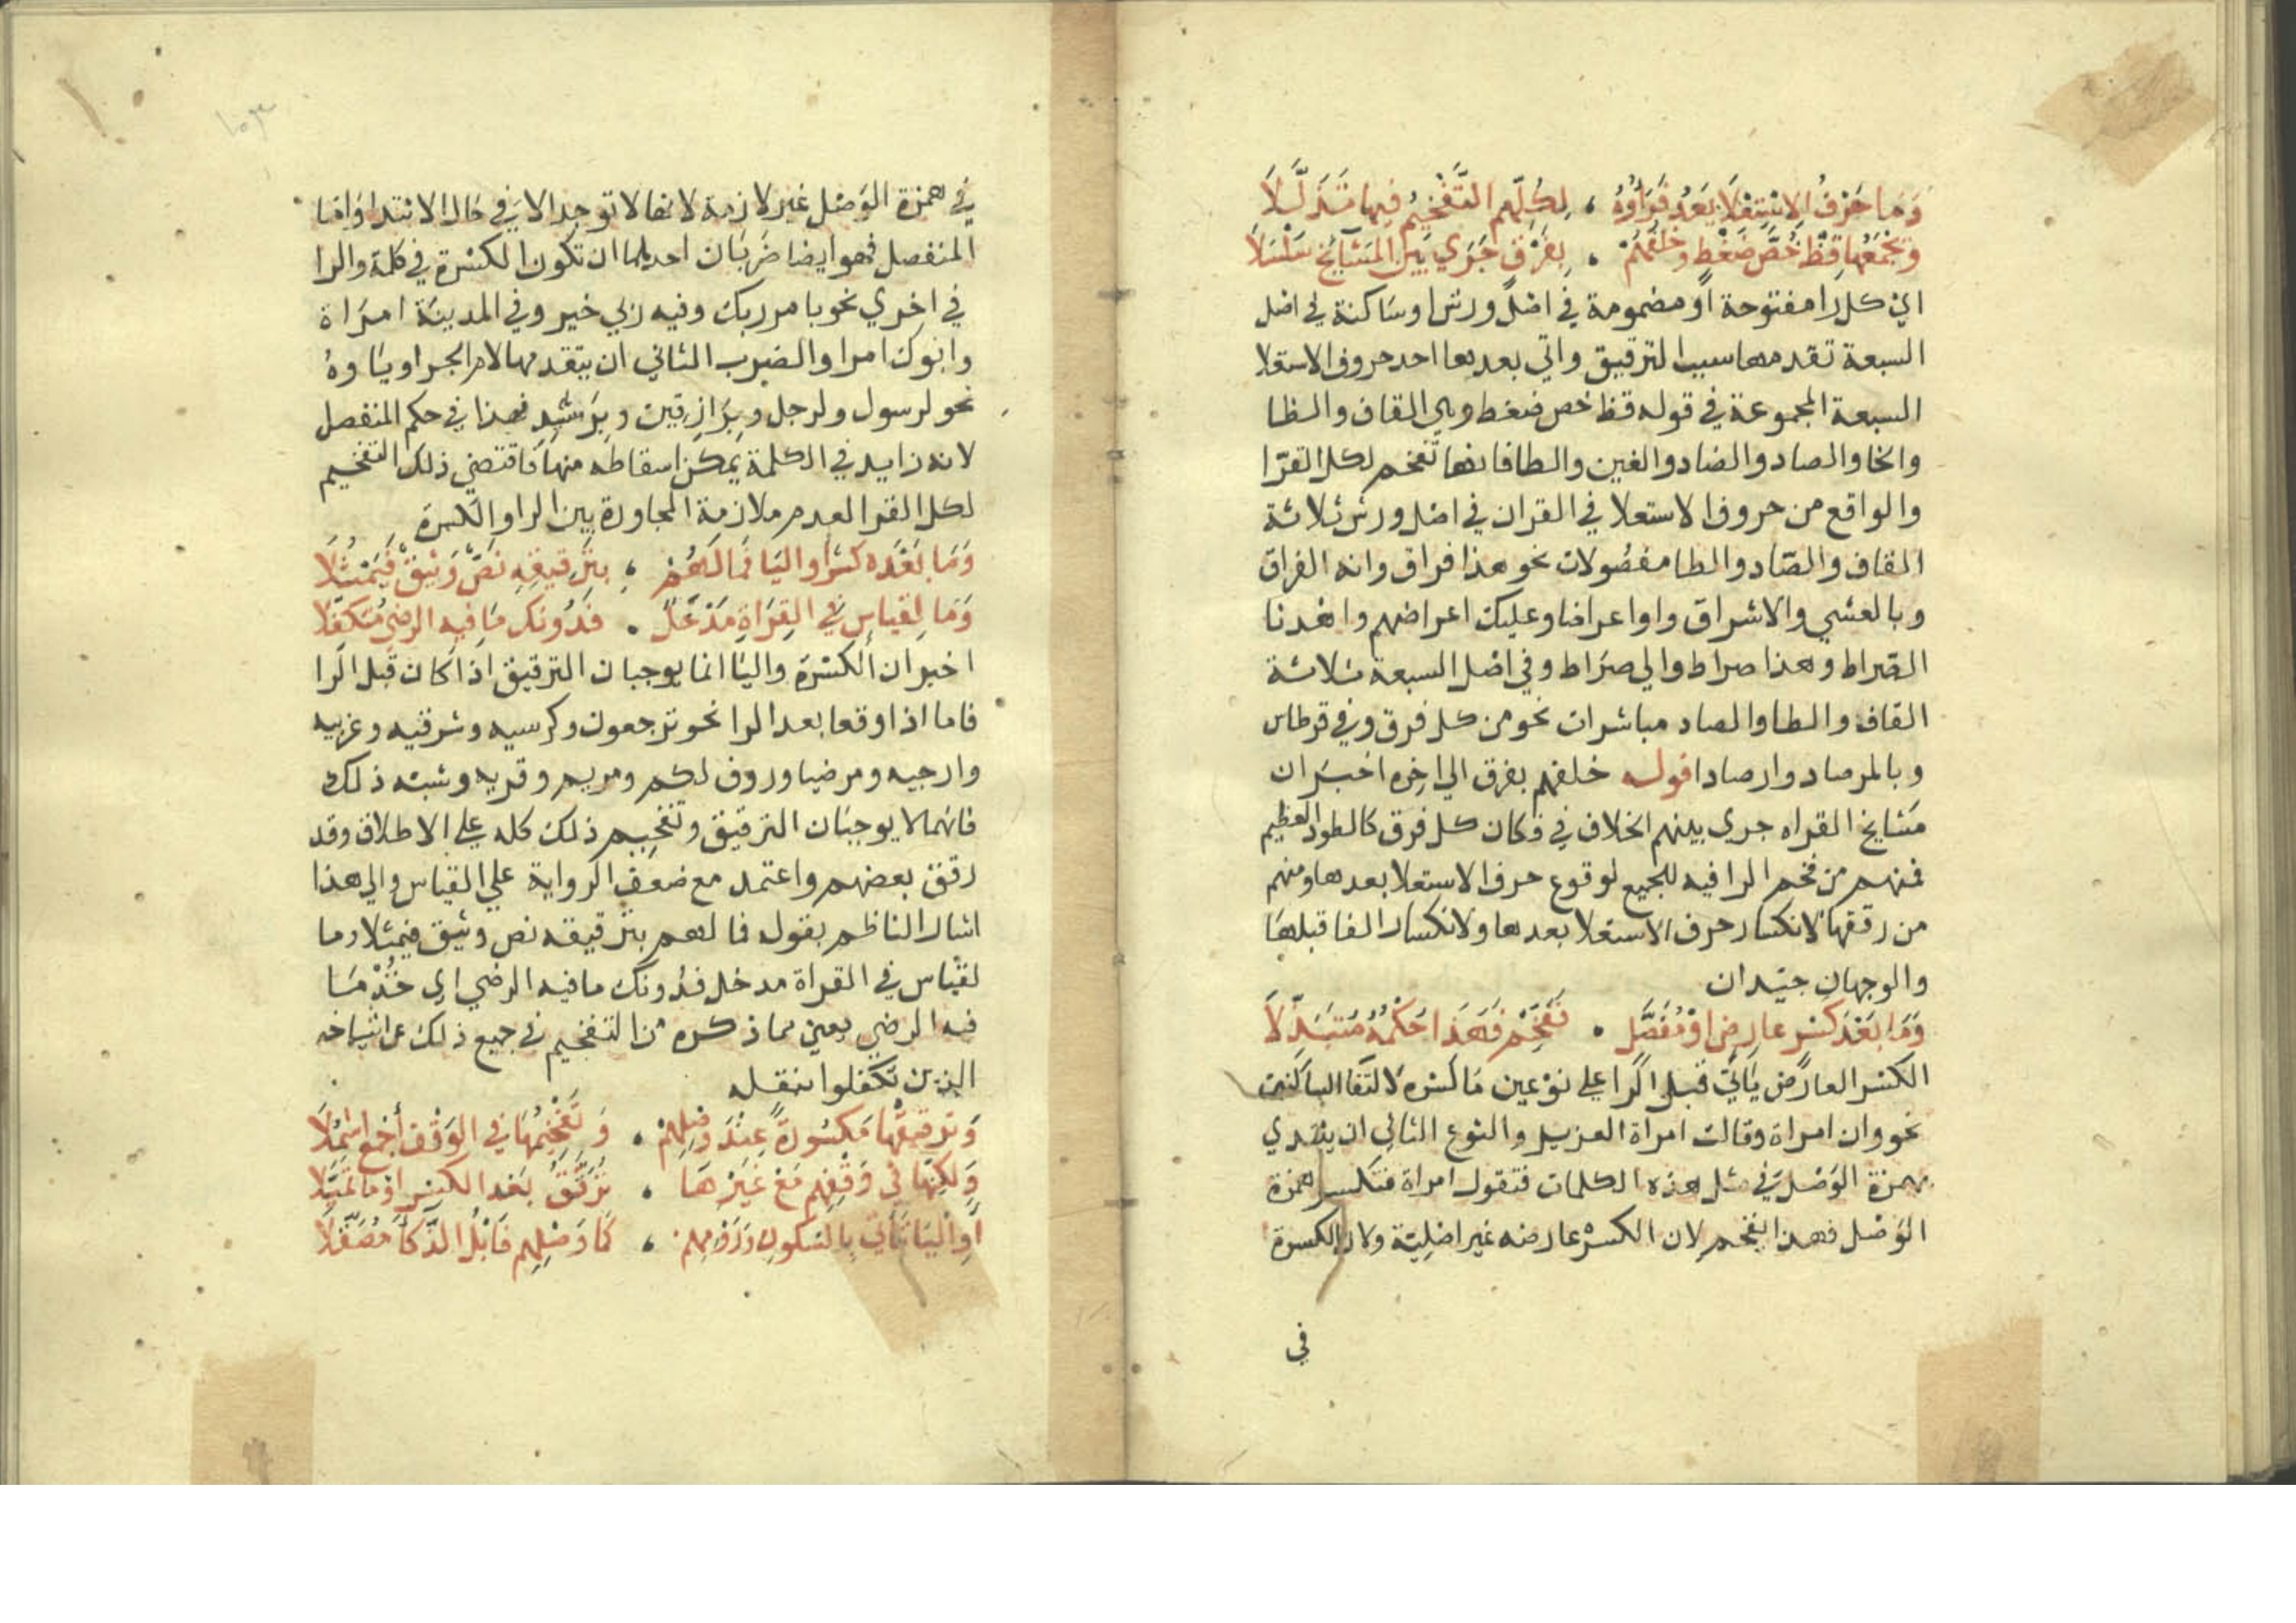 وَمَا حَرْفُ الِاسْتِعْلَا بَعْدُ فَرَاؤُهُ ، لِكُلِّهِم التَّفْخِيمُ فِيهَا تَذَلَّلَا
وَيَجْمَعُهَا قِظْ خُصَّ ضَغْطٍ وَخُلْفُهُمْ . بِفِرْقٍ جَرَى بَيْنَ المَشَايِخِ سَلْسَلَا
اي كل را مفتوحة او مضمومة في اصل ورش او ساكنة في اصل
السبعة تقدمها سبب الترقيق واتي بعدها احد حروف الاستعلا
السبعة المجموعة في قوله قظ خص ضغط وهي القاف والظا
والخا والصاد والضاد والغين والطا فانها تفخم لكل القرّا
والواقع من حروف الاستعلا في القران في اصل ورش ثلاثة
القاف والصّاد والطا مفصُولات نحو هذا فراق وانه الفراق
وبالعشي والاشراق واو اعراضا وعليك اعراضهم واهدنا
الصّراط وهذا صراط والي صرَاط وفي اصل السبعة ثلاثة
القاف والطا والصاد مباشرات نحو من كل فرق وفي قرطاس
وبالمرصاد وارصادا قوله خلفهم بفرق الي اخره اخبَر ان
مشايخ القراه جري بينهم الخلاف في فكان كل فرق كالطود العظيم
فمنهم من فخم الرا فيه للجميع لوقوع حرف الاستعلا بعدها ومنهم
من رققها لانكسار حرف الاستعلا بعدها ولانكسار الفا قبلهَا
والوجهان جيّدان
وَمَا بَعْدَ كَسْرٍ عارِضٍ اوْ مُفَصَّلٍ . فَفَخِّمْ فَهَذَا حُكْمُهُ مُتَبَذِّلَا
الكسر العارض يَاتي قبل الرا علي نوْعين مَا كسره لالتقا الساكنين
نحو وان امراة وقالت امراة العزيز والنوع الثاني ان يبتدي
بهمزة الوَصْل في مثل هذه الكلمات فتقول امراة فتكسر همزة
الوَصْل فهذا يفخم لان الكسْر عارضه غير اصْلِيّة ولان الكسرة
في
في همزة الوَصْل غير لازمة لانها لا توجد الا في حَال الابتدا وامّا
المنفصل فهو ايضا ضَربَان احدهما ان تكون الكسْرة في كلمة والرا
في اخري نحو بامر ربك وفيه ربي خير وفي المدينَة امرَاة
وابوك امرا والضرب الثاني ان يتقدمها لام الجر او بَاوهُ
نحو لرسول ولرجل وبِرَازِقين وبرَشيدٍ فهذا في حكم المنفصل
لانه زايد في الكلمة يمكن اسقاطه منهَا فاقتضي ذلك التفخيم
لكل القرا لعدم ملازمة المجاورة بين الرا والكسْرَة
وَمَا بَعْدَه كَسْرٌ او اليَا فَمَا لَهُمْ ، بِتَرْقِيقِهِ نَصٌّ وَثِيقٌ فَيَمْثُلَا
وَمَا لِقِيَاسٍ في القِرَاةِ مَدْخَلٌ . فَدُونَكَ مَا فِيهِ الرضى مُتَكَفِّلَا
اخبر ان الكسْرَة واليَا انما يوجبان الترقيق اذا كان قبل الرا
فاما اذا وقعا بعد الرا نحو ترجعون وكرسيه وشرقيه وغربيه
وارجيه ومرضيا وروف لكم ومريم وقريه وشبه ذلك
فانهما لا يوجبَان الترقيق وتفخيم ذلك كله علي الاطلاق وقد
رقق بعضهم واعتمد مع ضعف الرواية علي القياس والي هذا
اشار الناظم بقوله فما لهم بترقيقه نص وثيق فيمثلا وما
لقياس في القراة مدخل فدُونك مافيه الرضي اي خُذْ مَا
فيه الرضي يعين مما ذكره من التفخيم في جميع ذلك عن اشياخه
الذين تكفلوا بنقله
وَتَرقيقُهَا مَكسُورَةً عِنْدَ وَصْلِهِمْ . وَتَفْخِيمُهَا في الوَقْف أجمَع اشْمُلَا
وَلَكِنَّهَا في وَقْفِهِم مَعْ غَيْرِهَا . تُرَقَّقُ بَعْد الكَسْرِ اوْ مَا تمَيَّلَا
أوِ اليَا تَأْتي بِالسُكونِ وَرَوْمِهِم ، كَمَا وَصْلِهِم فَابْلُ الذَّكَا مُصَقَّلَا